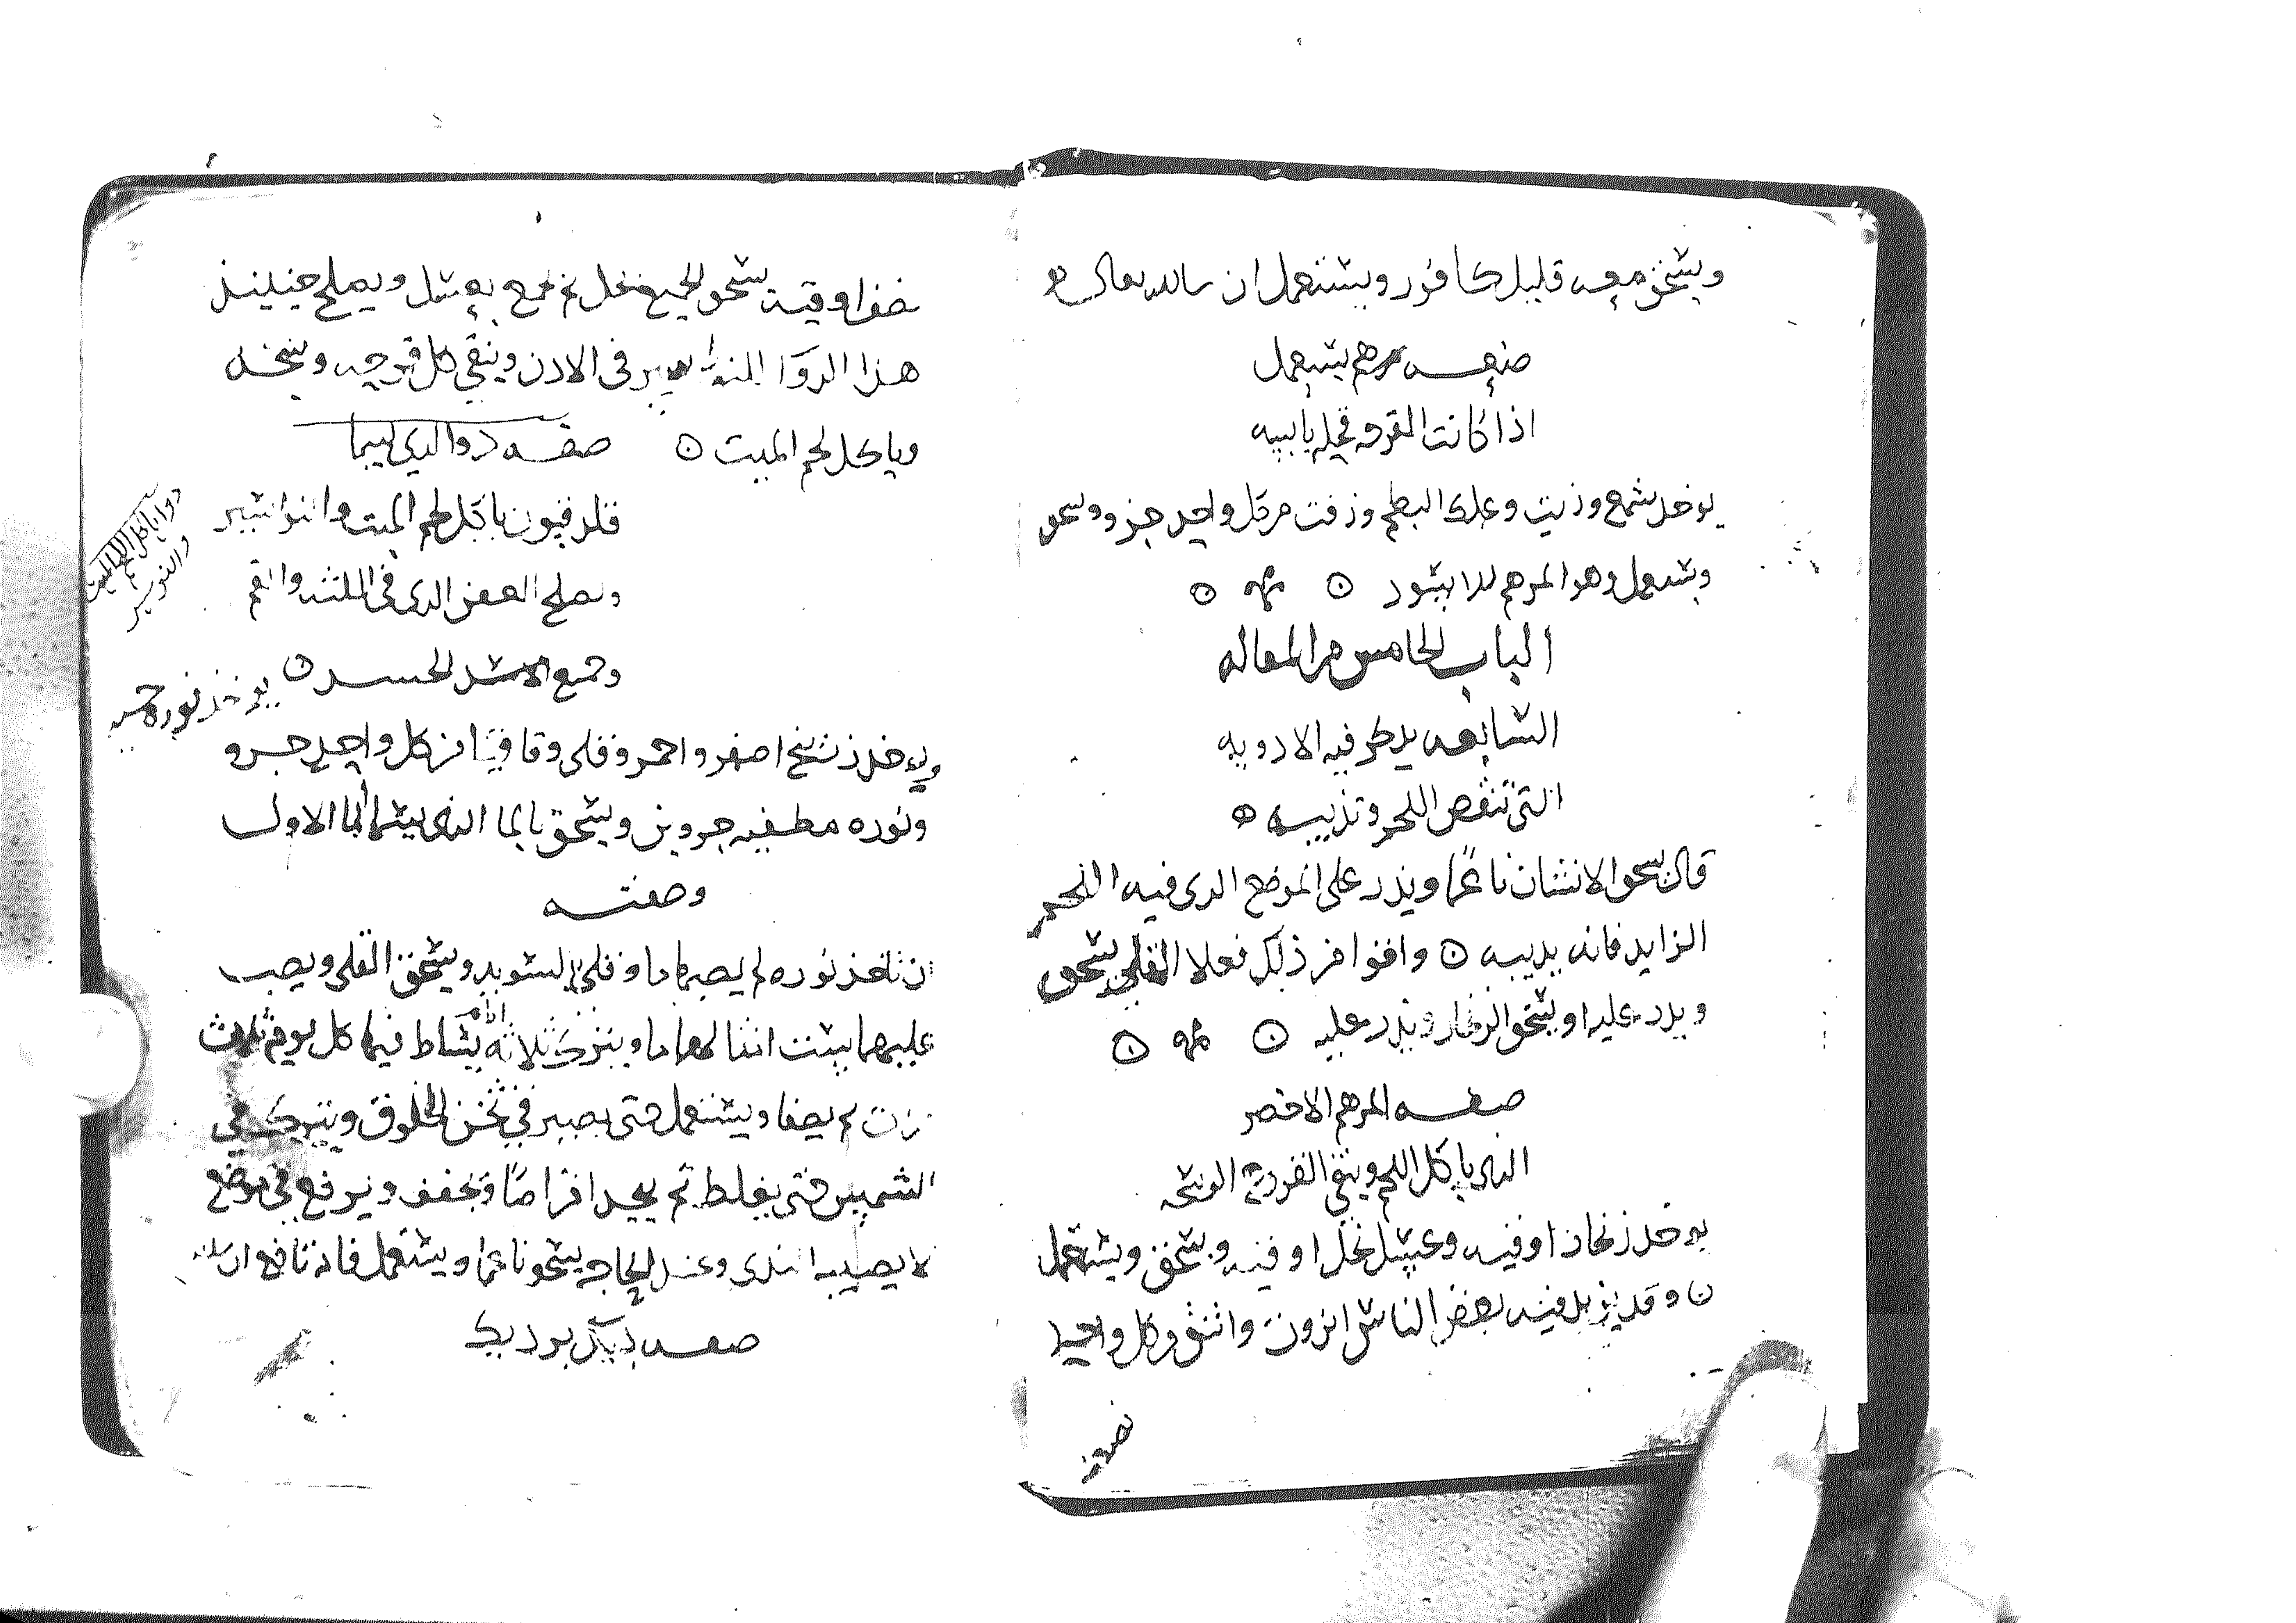 ويسحق معه قليل كافور ويستعمل ان تعالى
صفه مرهم يستعمل
اذا كانت القرحه قحله يابسه
يوخد شمع وزيت وعلك البطم وزفت من كل واحد جزو ويسحق
ويستعمل وهو المرهم الاسود
الباب الخامس من المقاله
السابعه يذكر فيه الادويه
التي تنقص اللحم وتذيبه
قال يسحق الاشنان ناعما ويذر على الموضع الدى فيه اللحم
الزايد فانه يذيبه واقوا من ذلك فعلا القلي يسحق
ويذر عليه او يسحق الزنجار ويذر عليه
صفه المرهم الاخضر
الذى ياكل اللحم وينقي القروح الوسخه
يوخد زنجار اوقيه وعسل نحل اوقيه ويسحق ويستعمل
وقد يزيد فيه بعض الناس انزروت واشق من كل واحد
نصف
نصف اوقيه يسحق الجميع بخل ثم يجمع بعسل ويصلح حينيذ
هذا الدوا للنواسير فى الادن وينقي كل قرحه وسخه
وياكل لحم الميت صفه دوا الدي يسما
قلدفيون ياكل لحم الميت والنواسير
ويصلح العفن الدى فى اللثه والفم
وجميع الجسد يوخد نوره حيه
ويوخد زرنيخ اصفر واحمر وقلى وقاقيا من كل واحد جزو
ونوره مطفيه جزوين ويسحق بالما الذى يسما الما الاول
وصفته
ان تاخذ نوره لم يصبها ما وقلي ويسحق القلى ويصب
عليهما ستت امثالهما ما ويترك ثلاثه ايام يساط فيها كل يوم ثلاث
مرات ثم يصفا ويستعمل حتى يصير في ثخن الخلوق ويترك في
الشمس حتى يغلظ ثم يعمل اقراصا ويجفف ويرفع في موضع
لا يصيبه الندى وعند الحاجه يسحق ناعما ويستعمل فانه نافع ان
صفه ديك برديك
دوا ياكل اللحم الميت
والنوسير